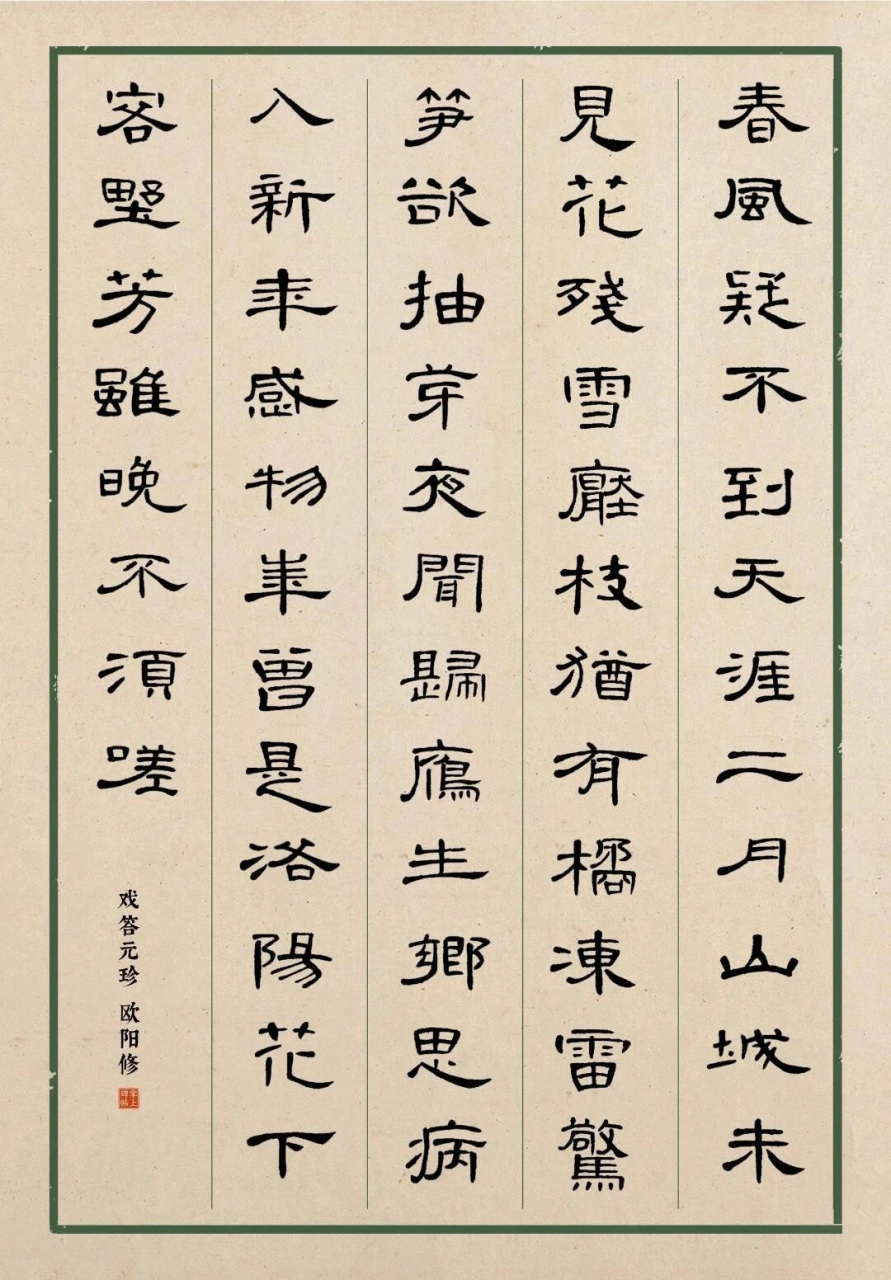 春風疑不到天涯二月山城未
見花殘雪壓枝猶有橘凍雷驚
筍欲抽芽夜聞歸鴈生鄉思病
入新年感物華曾是洛陽花下
客野芳雖晚不須嗟
戏答元珍 欧阳修
掌上
碑帖